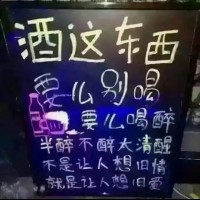 酒这东西
要么别喝
要么喝醉
半醉不醉太清醒
不是让人想旧情
就是让人想旧爱